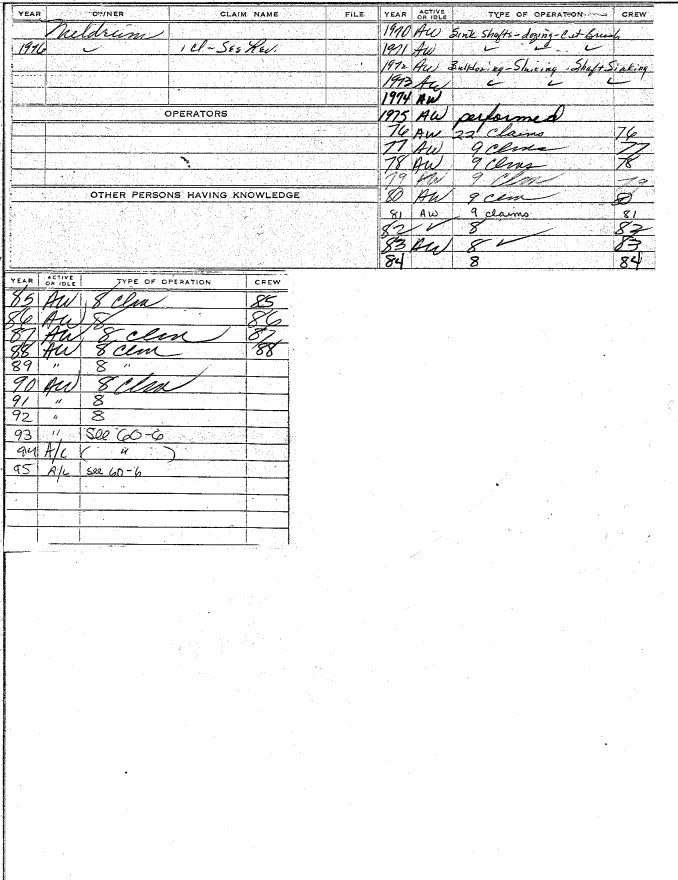 YEAR OWNER CLAIM NAME FILE
Meldrum
1976 ✓ 1 cl - See Rev.
OPERATORS
OTHER PERSONS HAVING KNOWLEDGE
YEAR ACTIVE OR IDLE TYPE OF OPERATION CREW
1970 AW Sink Shafts - dozing - Cut Brush
1971 AW ✓ ✓ ✓
1972 AW Bulldozing - Sluicing - Shaft Sinking
1973 AW ✓ ✓ ✓
1974 AW
1975 AW performed
76 AW 22 Claims 76
77 AW 9 Clms 77
78 AW 9 Clms 78
79 AW 9 Clm 79
80 AW 9 clm 80
81 AW 9 claims 81
82 ✓ 8 82
83 AW 8 ✓ 83
84 8 84
YEAR ACTIVE OR IDLE TYPE OF OPERATION CREW
85 AW 8 Clm 85
86 AW 8 86
87 AW 8 clm 87
88 AW 8 clm 88
89 " 8 "
90 AW 8 Clm
91 " 8
92 " 8
93 " See 60-6
94 A/L ( " )
95 A/L see 60-6